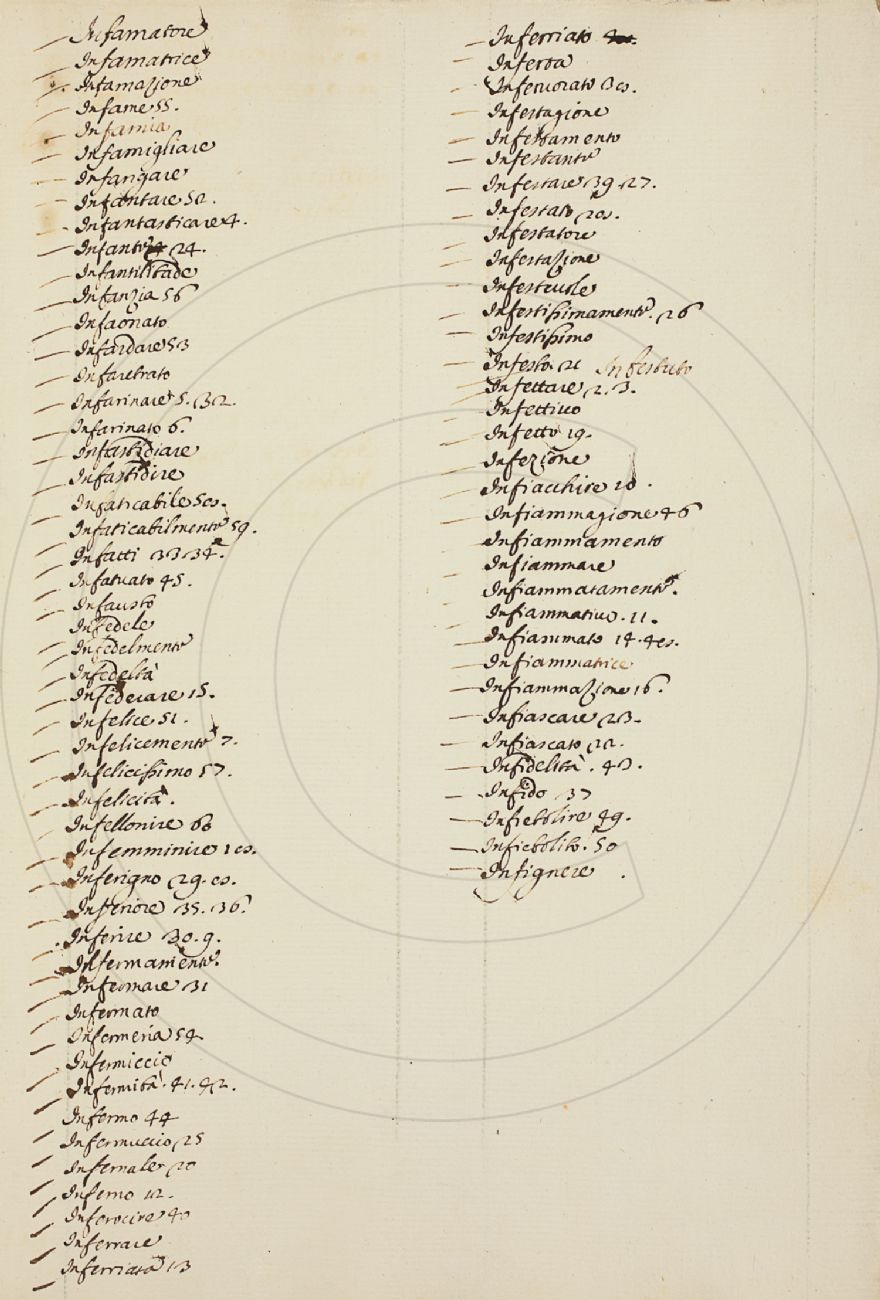 Infamatore
Infamatrice
Infamazione
Infame 55.
Infamia
Infamigliare
Infangare
Infantare 52.
Infantasticare 4.
Infante 24.
Infantilitade
Infanzia 56
Infaonato
Infardare 53
Infaretrato
Infarinare 5. 32.
Infarinato 6.
Infastidiare
Infastidire
Infaticabile 58.
Infaticabilmente 59.
Infatti 33 34.
Infatuato 45.
Infausto
Infedele
Infedelmente
Infedeltà
Infederare 15.
Infelice 51.
Infelicemente 7.
Infelicissimo 57.
Infelicità.
Infellonire
Infemminire 18.
Inferigno 29. 8.
Inferiore 35. 36.
Inferire 30. 9.
Infermamente.
Infermare 31
Infermato
Infermeria 54
Infermiccio
Infermità. 41. 42.
Infermo 44
Infermuccio 25
Infernale 20
Inferno 12.
Inferocire 40
Inferrare
Inferriata 13
Inferriato
Inferta
Infervorato 38.
Infestagione
Infestamento
Infestante
Infestare 39. 27.
Infestato 28.
Infestatore
Infestazione
Infestevole
Infestissimamente. 26
Infestissimo
Infesto. 21 Infestuto
Infettare 2. 3.
Infettivo
Infetto 19.
Infezione
Infiacchire 10.
Infiammagione 46
Infiammamento
Infiammare
Infiammatamente.
Infiammativo. 11.
Infiammato 14. 48.
Infiammatrice
Infiammazione 16.
Infiascare 23.
Infiascato 22.
Infidelità. 43.
Infido 37
Infiebolire 49.
Infiebolito. 50
Infignere.